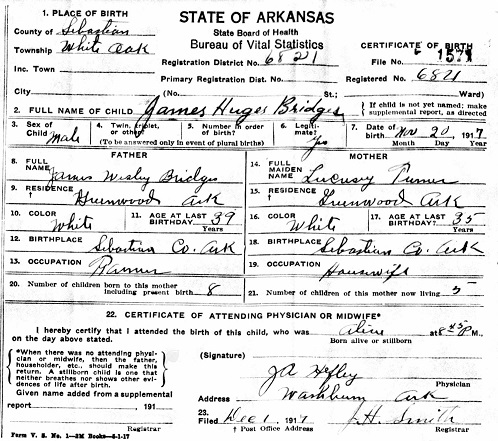 1. PLACE OF BIRTH
STATE OF ARKANSAS
County of Sebastian
State Board of Health
Township White Oak
Bureau of Vital Statistics
CERTIFICATE OF BIRTH
Registration District No. 6821
File No. 1571
Inc. Town
Primary Registration Dist. No.
Registered No. 6821
City (No. St.; Ward)
2. FULL NAME OF CHILD James Huges Bridges
If child is not yet named; make supplemental report, as directed
3. Sex of Child Male
4. Twin, triplet, or other
5. Number in order of birth?
6. Legitimate? Yes
7. Date of birth Nov 20, 1917
(To be answered only in event of plural births)
Month Day Year
FATHER
MOTHER
8. FULL NAME James Wesley Bridges
14. FULL MAIDEN NAME
9. RESIDENCE † Greenwood Ark
15. RESIDENCE † Greenwood Ark
10. COLOR White
11. AGE AT LAST BIRTHDAY? 39 Years
16. COLOR White
17. AGE AT LAST BIRTHDAY? 35 Years
12. BIRTHPLACE Sebastian Co. Ark
18. BIRTHPLACE Sebastian Co. Ark
13. OCCUPATION
19. OCCUPATION Housewife
20. Number of children born to this mother including present birth 8
21. Number of children of this mother now living 5
22. CERTIFICATE OF ATTENDING PHYSICIAN OR MIDWIFE*
I hereby certify that I attended the birth of this child, who was alive at 8 45 P M.
on the day above stated.
Born alive or stillborn
*When there was no attending physician or midwife, then the father, householder, etc., should make this return. A stillborn child is one that neither breathes nor shows other evidences of life after birth.
(Signature) J A Hefley
Physician
Given name added from a supplemental
Address Washburn Ark
report , 191
23. Filed Dec 1, 1917 J. H. Smith
Registrar
† Post Office Address
Registrar
Form V. S. No. 1—3M Books—5-1-17